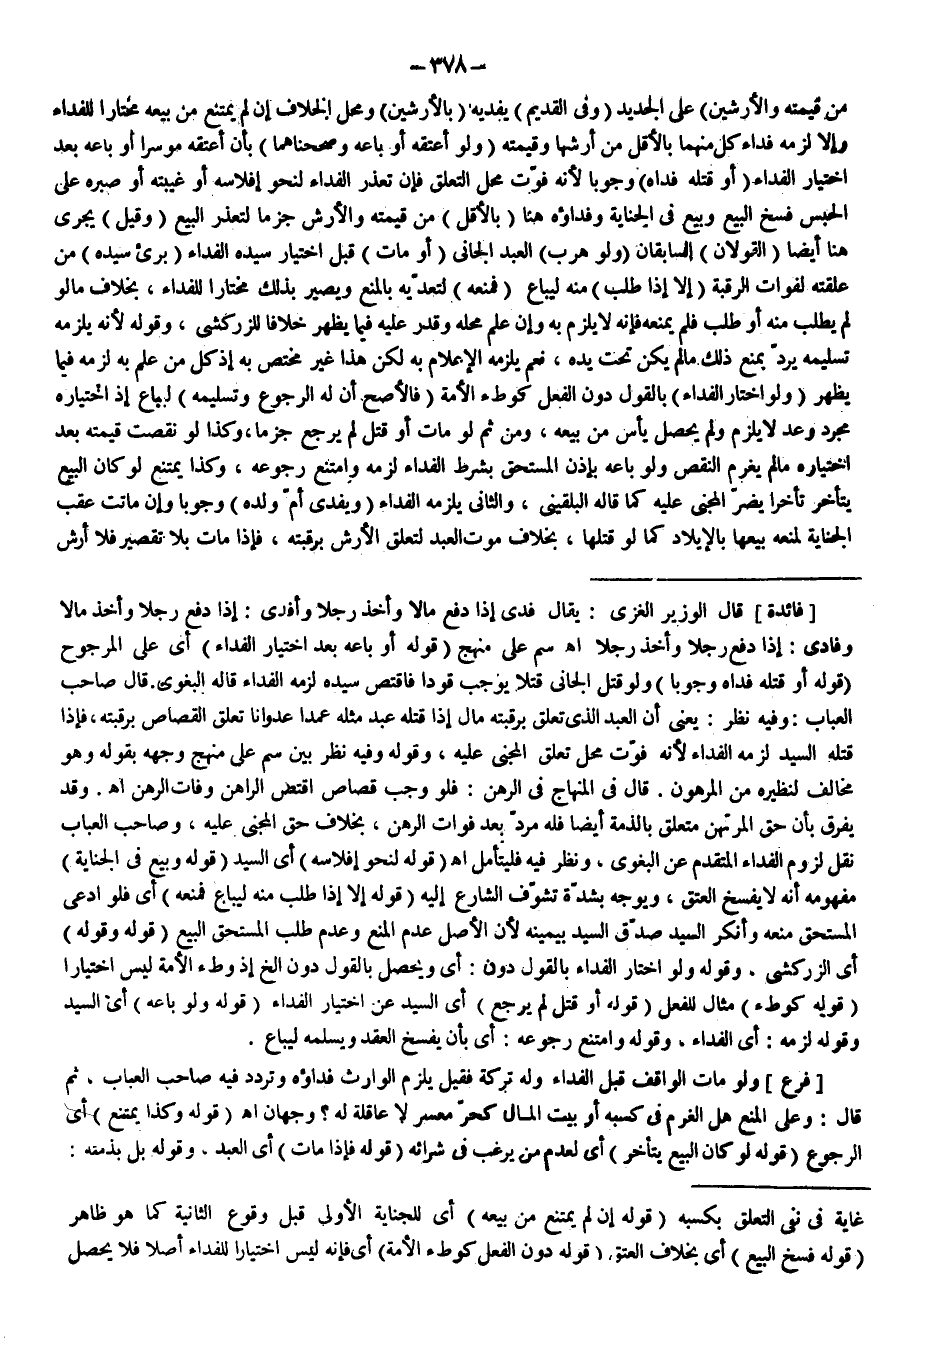 -٣٧٨-
من قيمته والأرشين) على الجديد (وفى القديم) يفديه (بالأرشين) ومحل الخلاف إن لم يمتنع من بيعه مختارا للفداء
وإلا لزمه فداء كل منهما بالأقل من أرشها وقيمته (ولو أعتقه أو باعه وصححناهما) بأن أعتقه موسرا أو باعه بعد
اختيار الفداء (أو قتله فداه) وجوبا لأنه فوّت محل التعلق فإن تعذر الفداء لنحو إفلاسه أو غيبته أو صبره على
الحبس فسخ البيع وبيع فى الجناية وفداؤه هنا (بالأقل) من قيمته والأرش جزما لتعذر البيع (وقيل) يجرى
هنا أيضا (القولان) السابقان (ولو هرب) العبد الجانى (أو مات) قبل اختيار سيده الفداء (برئ سيده) من
علقته لفوات الرقبة (إلا إذا طلب) منه ليباع (فمنعه) لتعدّيه بالمنع ويصير بذلك مختارا للفداء ، بخلاف مالو
لم يطلب منه أو طلب فلم يمنعه فإنه لا يلزم به وإن علم محله وقدر عليه فيما يظهر خلافا للزركشى ، وقوله لأنه يلزمه
تسليمه يردّ بمنع ذلك مالم يكن تحت يده ، نعم يلزمه الإعلام به لكن هذا غير مختص به إذ كل من علم به لزمه فيما
يظهر (ولو اختار الفداء) بالقول دون الفعل كوطء الأمة (فالأصح أن له الرجوع وتسليمه) ليباع إذ اختياره
مجرد وعد لا يلزم ولم يحصل يأس من بيعه ، ومن ثم لو مات أو قتل لم يرجع جزما ، وكذا لو نقصت قيمته بعد
اختياره مالم يغرم النقص ولو باعه بإذن المستحق بشرط الفداء لزمه وامتنع رجوعه ، وكذا يمتنع لو كان البيع
يتأخر تأخرا يضرّ المجنى عليه كما قاله البلقينى ، والثانى يلزمه الفداء (ويفدى أمّ ولده) وجوبا وإن ماتت عقب
الجناية لمنعه بيعها بالإيلاد كما لو قتلها ، بخلاف موت العبد لتعلق الأرش برقبته ، فإذا مات بلا تقصير فلا أرش
[فائدة] قال الوزير الغزى : يقال فدى إذا دفع مالا وأخذ رجلا وأفدى : إذا دفع رجلا وأخذ مالا
وفادى : إذا دفع رجلا وأخذ رجلا اه سم على منهج (قوله أو باعه بعد اختيار الفداء) أى على المرجوح
(قوله أو قتله فداه وجوبا) ولو قتل الجانى قتلا يوجب قودا فاقتص سيده لزمه الفداء قاله البغوى. قال صاحب
العباب : وفيه نظر : يعنى أن العبد الذى تعلق برقبته مال إذا قتله عبد مثله عمدا عدوانا تعلق القصاص برقبته ، فإذا
قتله السيد لزمه الفداء لأنه فوّت محل تعلق المجنى عليه ، وقوله وفيه نظر بين سم على منهج وجهه بقوله وهو
مخالف لنظيره من المرهون . قال فى المنهاج فى الرهن : فلو وجب قصاص اقتص الراهن وفات الرهن اه . وقد
يفرق بأن حق المرتهن متعلق بالذمة أيضا فله مردّ بعد فوات الرهن ، بخلاف حق المجنى عليه ، وصاحب العباب
نقل لزوم الفداء المتقدم عن البغوى ، ونظر فيه فليتأمل اه (قوله لنحو إفلاسه) أى السيد (قوله وبيع فى الجناية)
مفهومه أنه لا يفسخ العتق ، ويوجه بشدّة تشوّف الشارع إليه (قوله إلا إذا طلب منه ليباع فمنعه) أى فلو ادعى
المستحق منعه وأنكر السيد صدّق السيد بيمينه لأن الأصل عدم المنع وعدم طلب المستحق البيع (قوله وقوله)
أى الزركشى . وقوله ولو اختار الفداء بالقول دون : أى ويحصل بالقول دون الخ إذ وطء الأمة ليس اختيارا
(قوله كوطء) مثال للفعل (قوله أو قتل لم يرجع) أى السيد عن اختيار الفداء (قوله ولو باعه) أى السيد
وقوله لزمه : أى الفداء ، وقوله وامتنع رجوعه : أى بأن يفسخ العقد ويسلمه ليباع .
[فرع] ولو مات الواقف قبل الفداء وله تركة فقيل يلزم الوارث فداؤه وتردد فيه صاحب العباب . ثم
قال : وعلى المنع هل الغرم فى كسبه أو بيت المال كحرّ معسر لا عاقلة له ؟ وجهان اه (قوله وكذا يمتنع) أى
الرجوع (قوله لو كان البيع يتأخر) أى لعدم من يرغب فى شرائه (قوله فإذا مات) أى العبد . وقوله بل بذمته :
غاية فى نفى التعلق بكسبه (قوله إن لم يمتنع من بيعه) أى للجناية الأولى قبل وقوع الثانية كما هو ظاهر
(قوله فسخ البيع) أى بخلاف العتق . (قوله دون الفعل كوطء الأمة) أى فإنه ليس اختيارا للفداء أصلا فلا يحصل